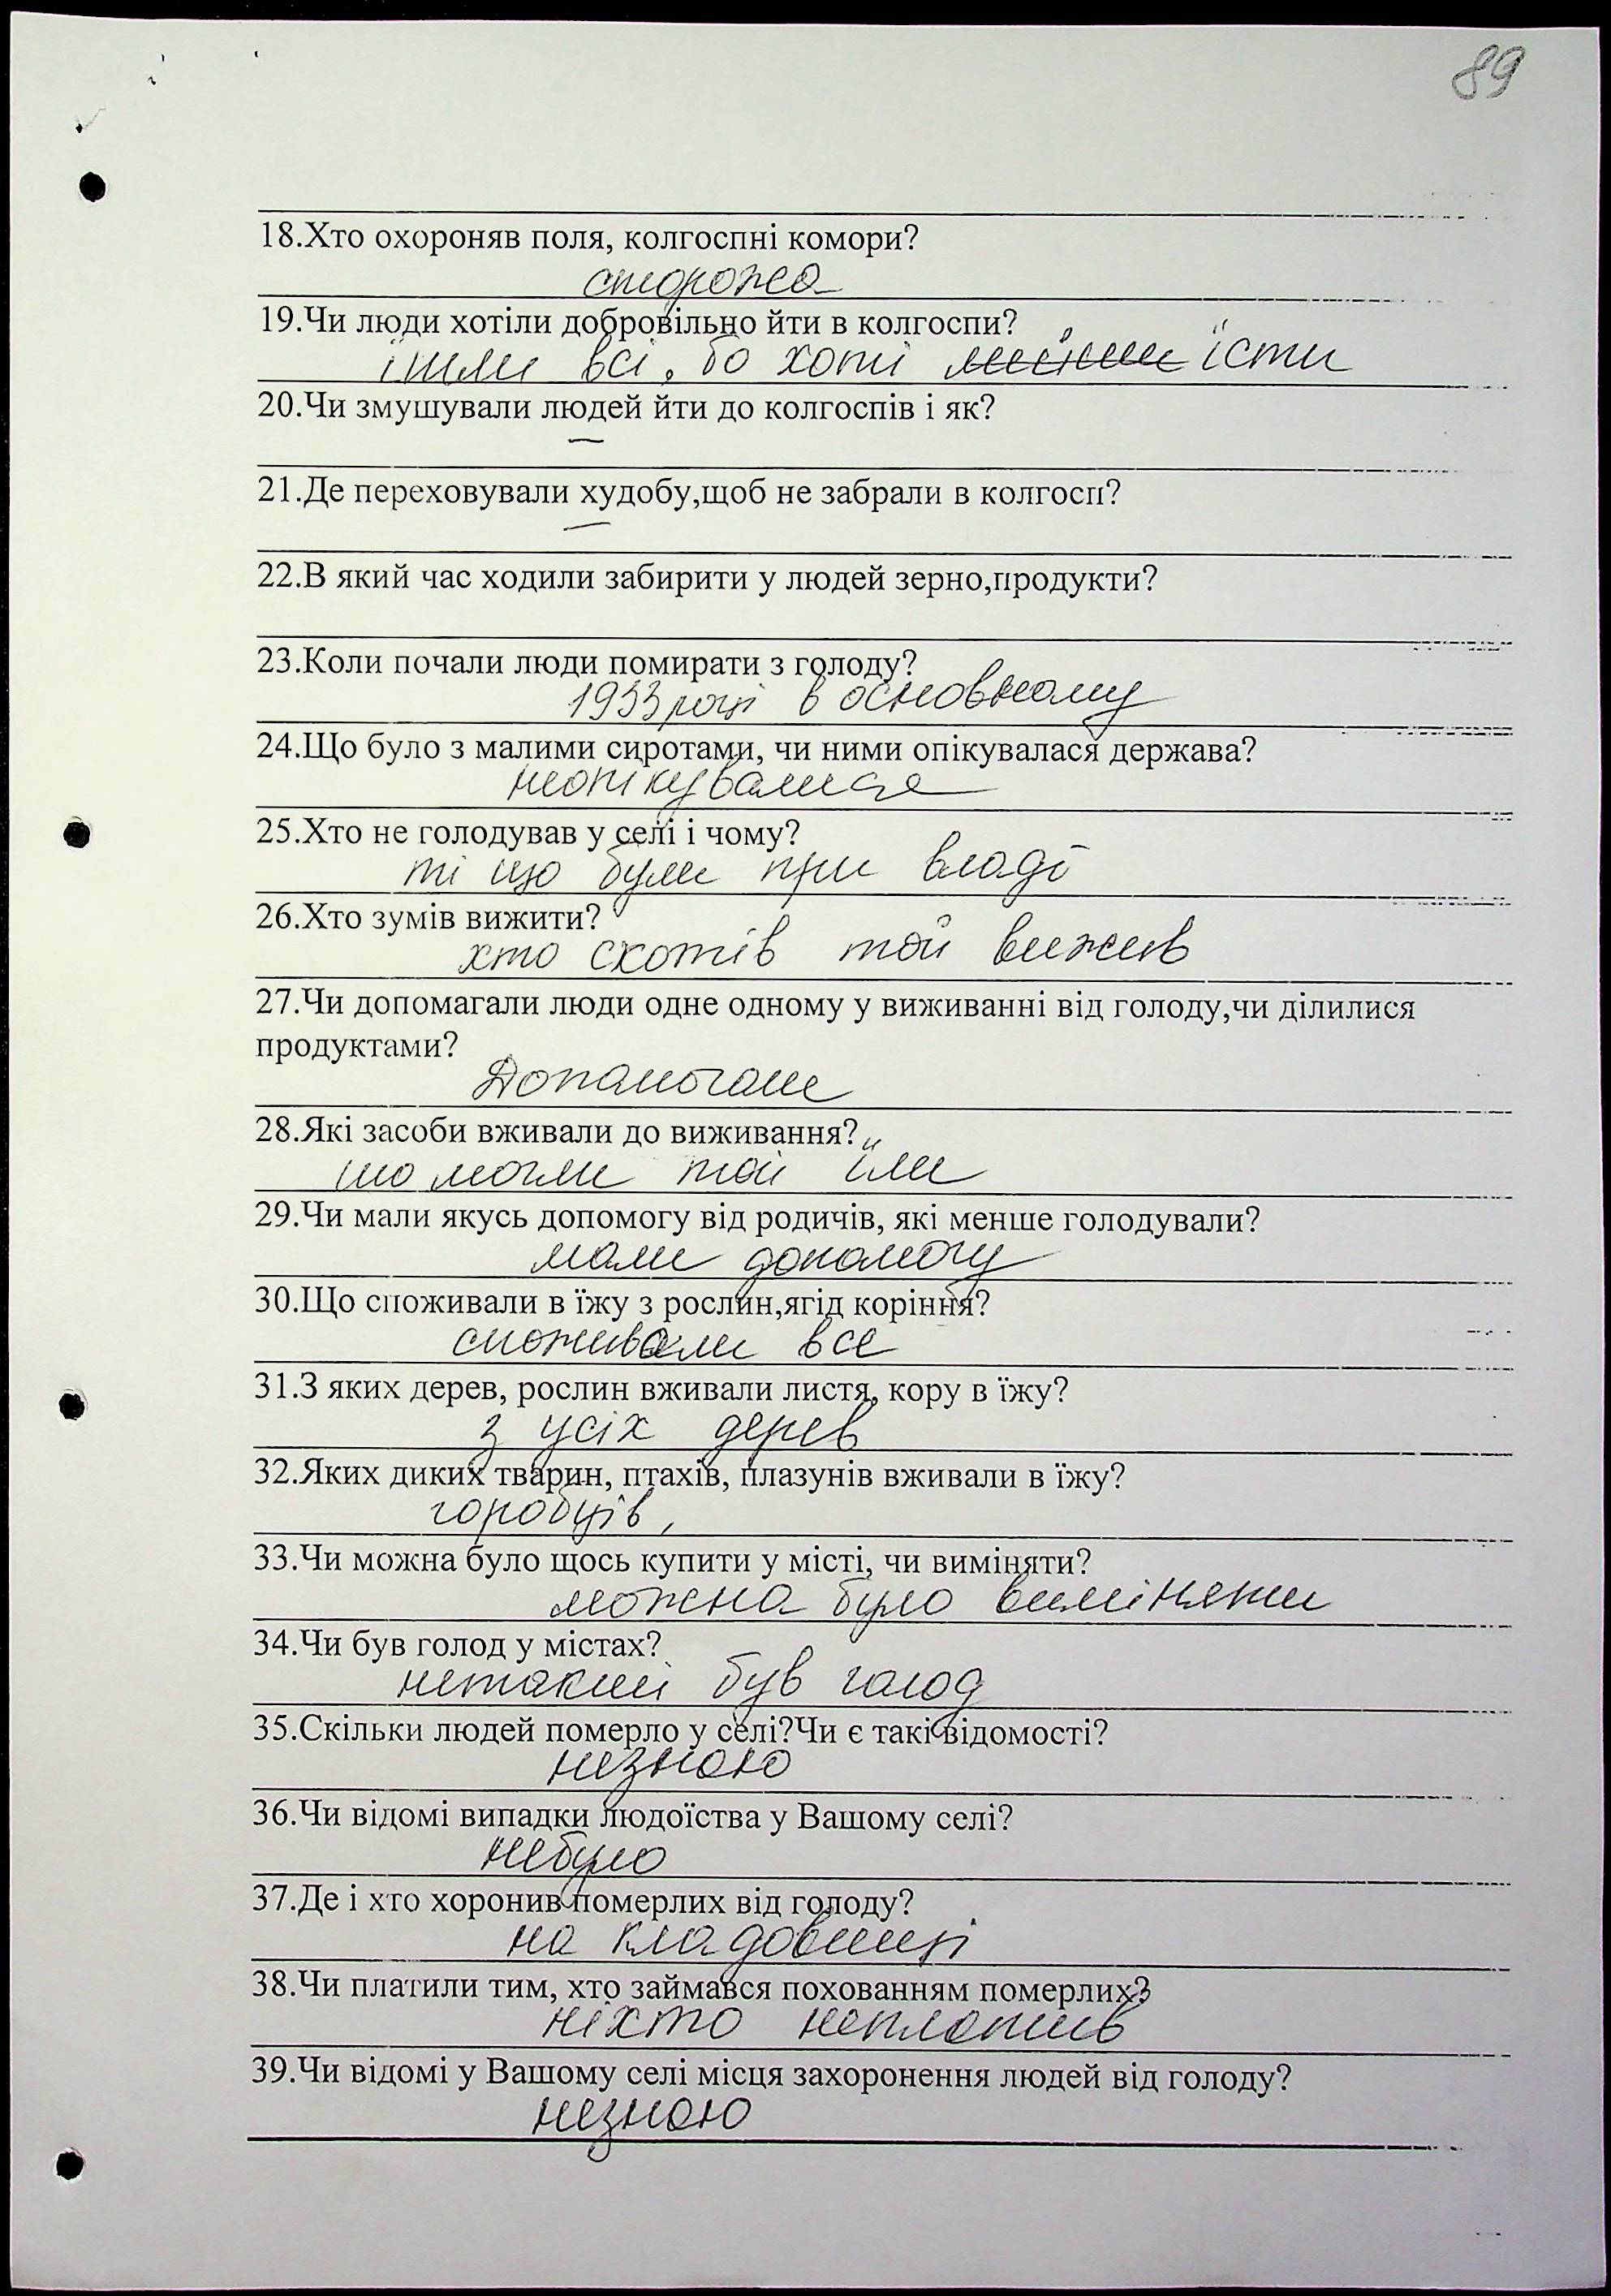 89
18.Хто охороняв поля, колгоспні комори?
сторожа
19.Чи люди хотіли добровільно йти в колгоспи?
ішли всі, бо хоті їсти
20.Чи змушували людей йти до колгоспів і як?
—
21.Де переховували худобу,щоб не забрали в колгосп?
—
22.В який час ходили забирити у людей зерно,продукти?
23.Коли почали люди помирати з голоду?
1933 році в основному
24.Що було з малими сиротами, чи ними опікувалася держава?
неопікувалися
25.Хто не голодував у селі і чому?
ті що були при владі
26.Хто зумів вижити?
хто схотів той вижив
27.Чи допомагали люди одне одному у виживанні від голоду,чи ділилися
продуктами?
Допамогали
28.Які засоби вживали до виживання?
що могли той їли
29.Чи мали якусь допомогу від родичів, які менше голодували?
мали допомогу
30.Що споживали в їжу з рослин,ягід коріння?
споживали все
31.З яких дерев, рослин вживали листя, кору в їжу?
з усіх дерев
32.Яких диких тварин, птахів, плазунів вживали в їжу?
горобців,
33.Чи можна було щось купити у місті, чи виміняти?
можна було виміняти
34.Чи був голод у містах?
нетакий був голод
35.Скільки людей померло у селі?Чи є такі відомості?
незнаю
36.Чи відомі випадки людоїства у Вашому селі?
небуло
37.Де і хто хоронив померлих від голоду?
на кладовищі
38.Чи платили тим, хто займався похованням померлих?
ніхто неплатив
39.Чи відомі у Вашому селі місця захоронення людей від голоду?
незнаю